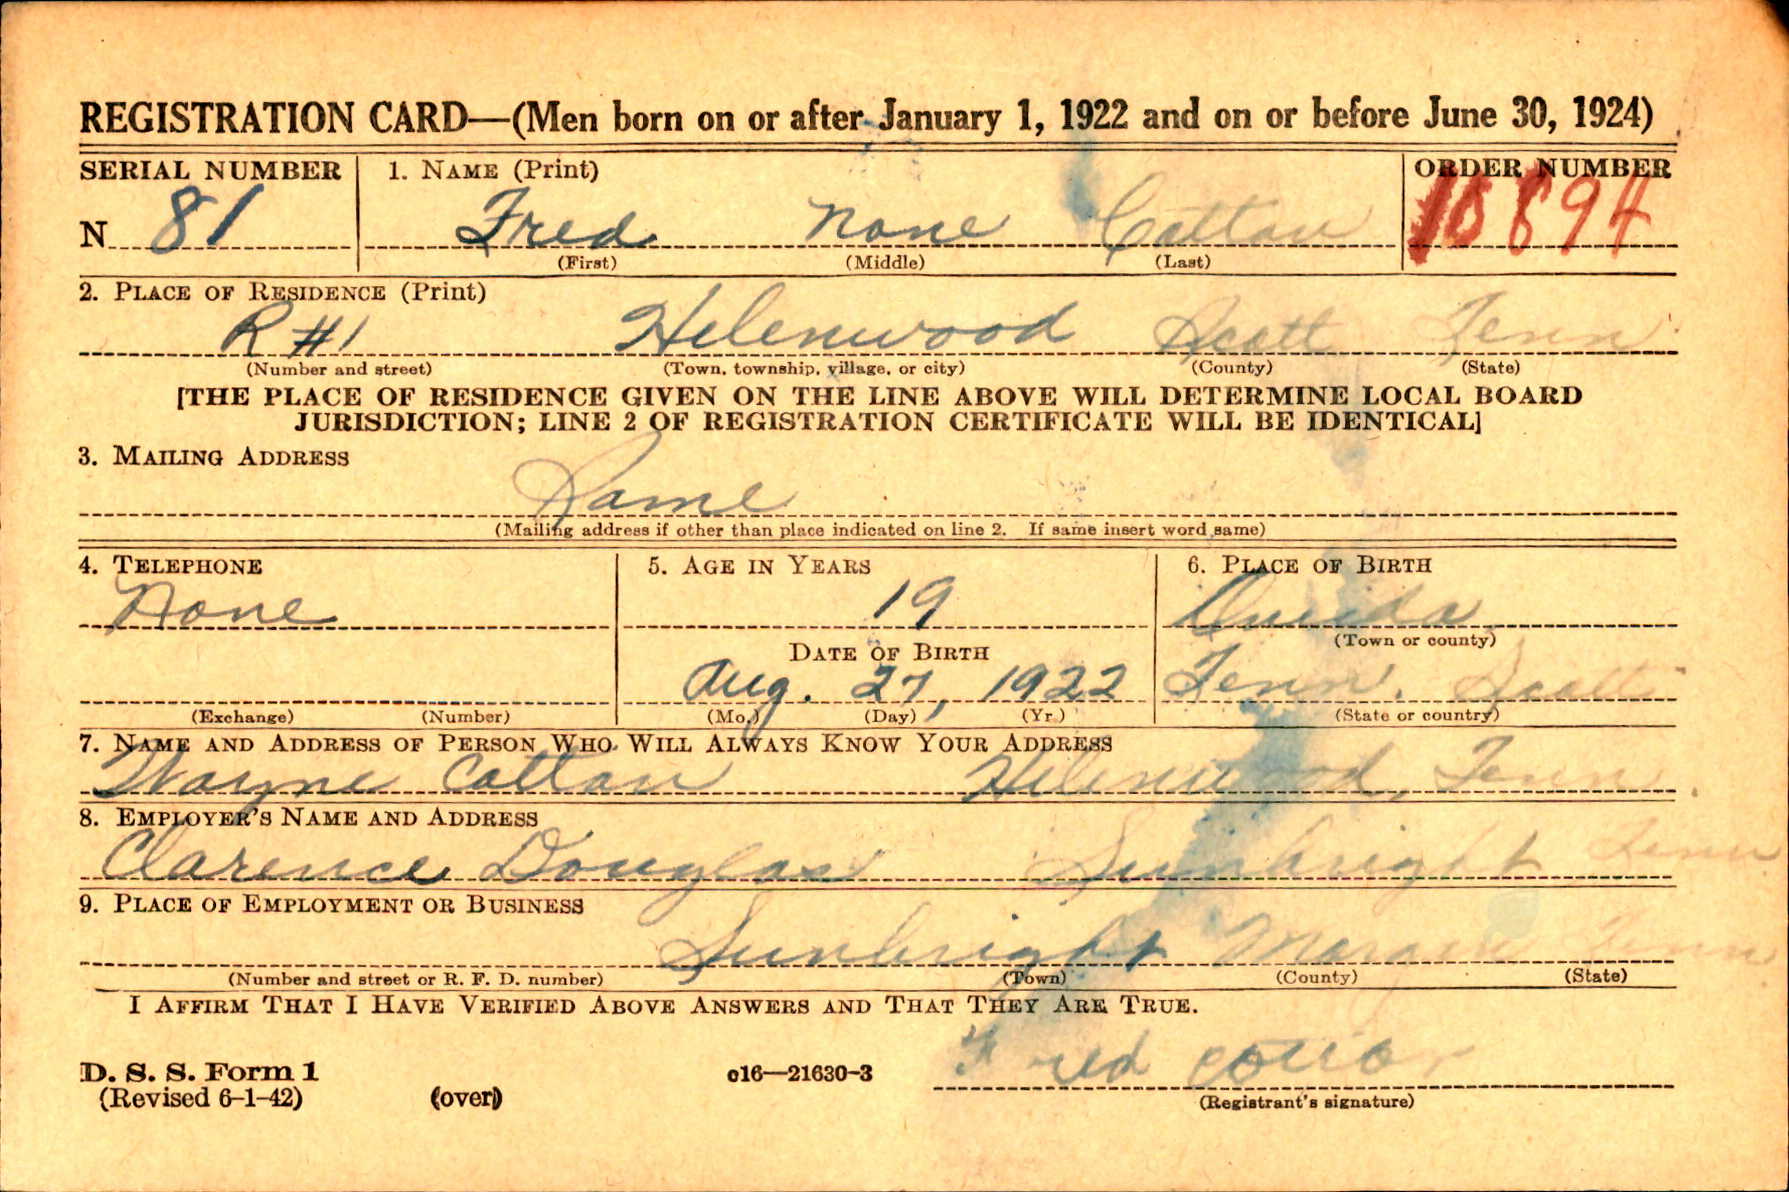 REGISTRATION CARD—(Men born on or after January 1, 1922 and on or before June 30, 1924)
SERIAL NUMBER 1. NAME (Print) ORDER NUMBER
N 81 Fred None Cotton 10894
(First) (Middle) (Last)
2. PLACE OF RESIDENCE (Print)
R #1 Helenwood Scott Tenn
(Number and street) (Town, township, village, or city) (County) (State)
[THE PLACE OF RESIDENCE GIVEN ON THE LINE ABOVE WILL DETERMINE LOCAL BOARD
JURISDICTION; LINE 2 OF REGISTRATION CERTIFICATE WILL BE IDENTICAL]
3. MAILING ADDRESS
Same
(Mailing address if other than place indicated on line 2. If same insert word same)
4. TELEPHONE 5. AGE IN YEARS 6. PLACE OF BIRTH
None 19 Oneida
DATE OF BIRTH (Town or county)
Aug. 27, 1922 Tenn. Scott
(Exchange) (Number) (Mo.) (Day) (Yr.) (State or country)
7. NAME AND ADDRESS OF PERSON WHO WILL ALWAYS KNOW YOUR ADDRESS
Wayne Cotton Helenwood, Tenn
8. EMPLOYER'S NAME AND ADDRESS
Clarence Douglas Sunbright Tenn
9. PLACE OF EMPLOYMENT OR BUSINESS
Sunbright Morgan Tenn
(Number and street or R. F. D. number) (Town) (County) (State)
I AFFIRM THAT I HAVE VERIFIED ABOVE ANSWERS AND THAT THEY ARE TRUE.
Fred Cotton
D. S. S. Form 1 c16—21630-3
(Revised 6-1-42) (over) (Registrant's signature)